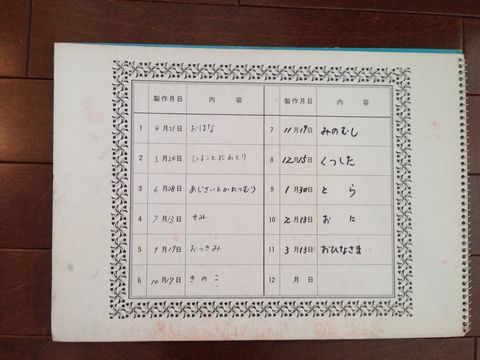 製作月日 内容
1 4月21日 おはな
2 5月26日 ひよことにわとり
3 6月28日 あじさいとかたつむり
4 7月13日 せみ
5 9月19日 おつきみ
6 10月17日 きのこ
製作月日 内容
7 11月19日 みのむし
8 12月15日 くつした
9 1月30日 とら
10 2月13日 おに
11 3月13日 おひなさま
12 月日